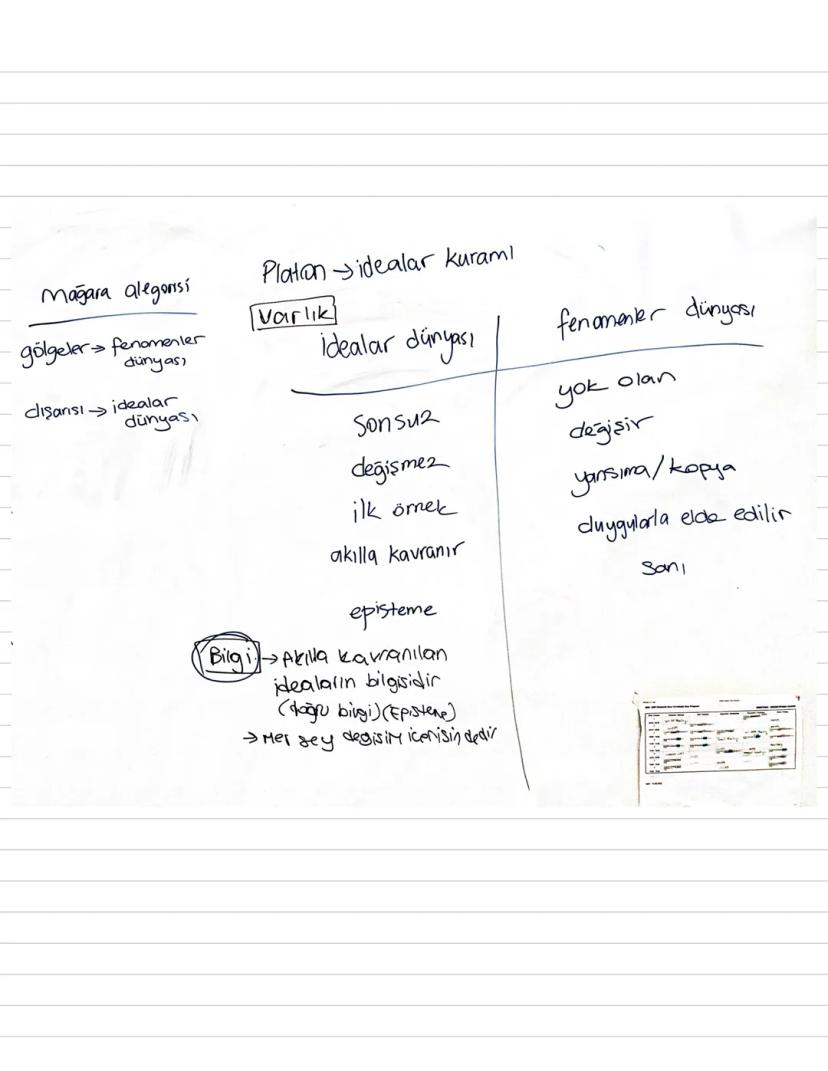 Platon → idealar kuramı
Mağara alegorisi
gölgeler → fenomenler
dünyası
dışarısı → idealar
dünyası
Varlık
idealar dünyası
sonsuz
değişmez
ilk örnek
akılla kavranır
episteme
Bilgi → Akılla kavranılan
ideaların bilgisidir
(doğru bilgi) (Episteme)
→ Her şey degisim icerisindedir
fenomenler dünyası
yok olan
değişir
yansıma/kopya
duygularla elde edilir
sanı